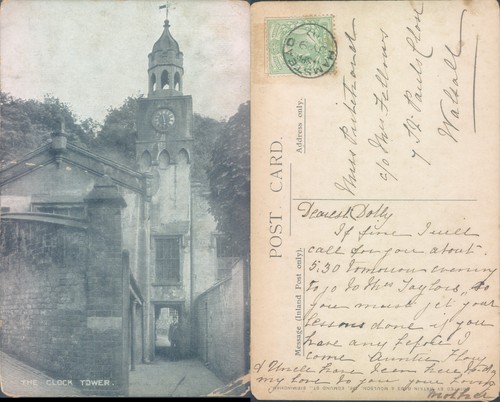 THE CLOCK TOWER.
HAMSTEAD
POST CARD.
Address only.
Message (Inland Post only).
c/o Mrs Fellows
7 St Pauls Close
Walsall
Dearest Dolly
If fine I will
call for you about
5.30 tomorrow evening
to go to Mrs Taylors, so
you must get your
lessons done if you
have any before I
come Auntie Flory
& Uncle have been here today
my love to you your loving
Mother